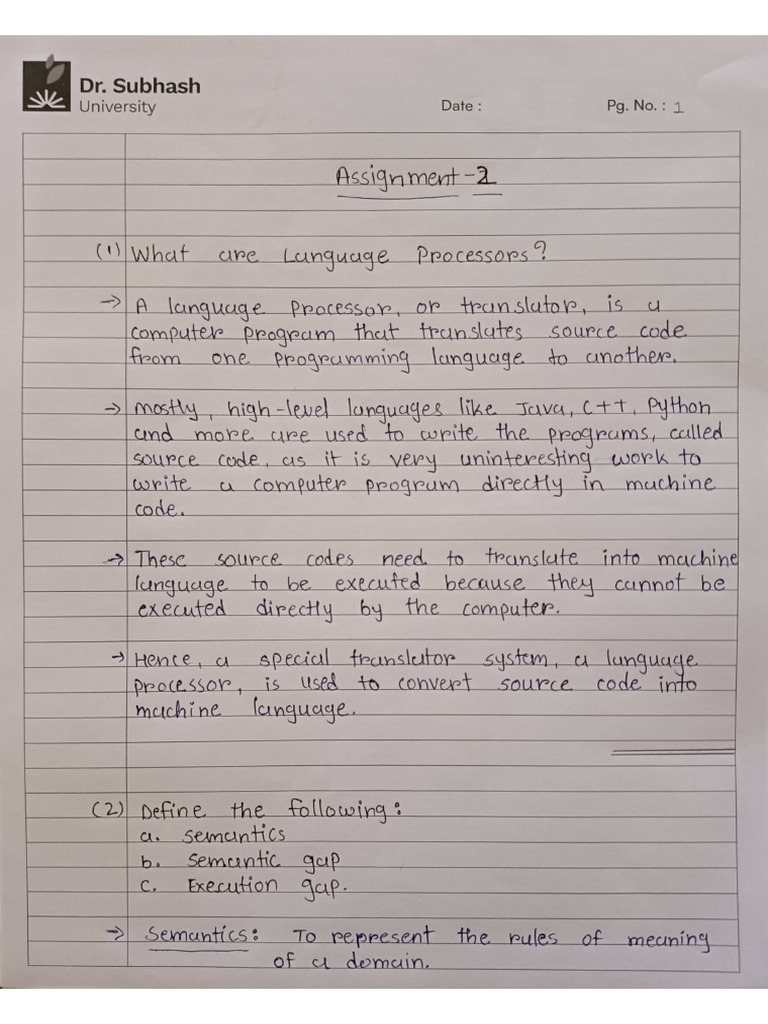 Dr. Subhash
University
Date :
Pg. No. : 1
Assignment - 2
(1) What are Language Processors?
→ A language processor, or translator, is a
computer program that translates source code
from one programming language to another.
→ mostly, high-level languages like Java, C++, Python
and more are used to write the programs, called
source code, as it is very uninteresting work to
write a computer program directly in machine
code.
→ These source codes need to translate into machine
language to be executed because they cannot be
executed directly by the computer.
→ Hence, a special translator system, a language
processor, is used to convert source code into
machine language.
(2) Define the following:
a. semantics
b. Semantic gap
c. Execution gap.
→ Semantics: To represent the rules of meaning
of a domain.